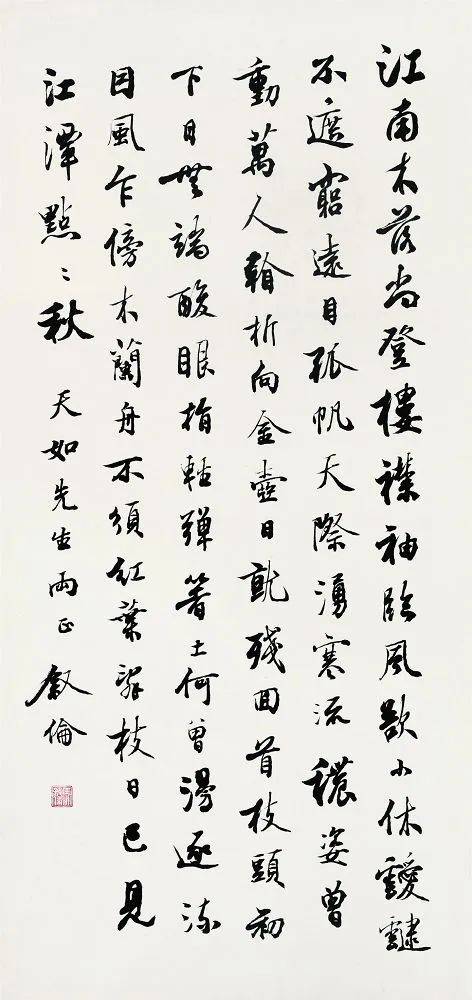 江南木落尚登樓襟袖臨風歎小休靉靆
不遮窮遠目孤帆天際湧寒流穠姿曾
動萬人看折向金壺日就殘回首枝頭初
下日無端酸眼指輕彈箸土何曾漫逐流
因風乍傍木蘭舟不須紅葉辭枝日已見
江潭點〻秋 天如先生兩正 叙倫